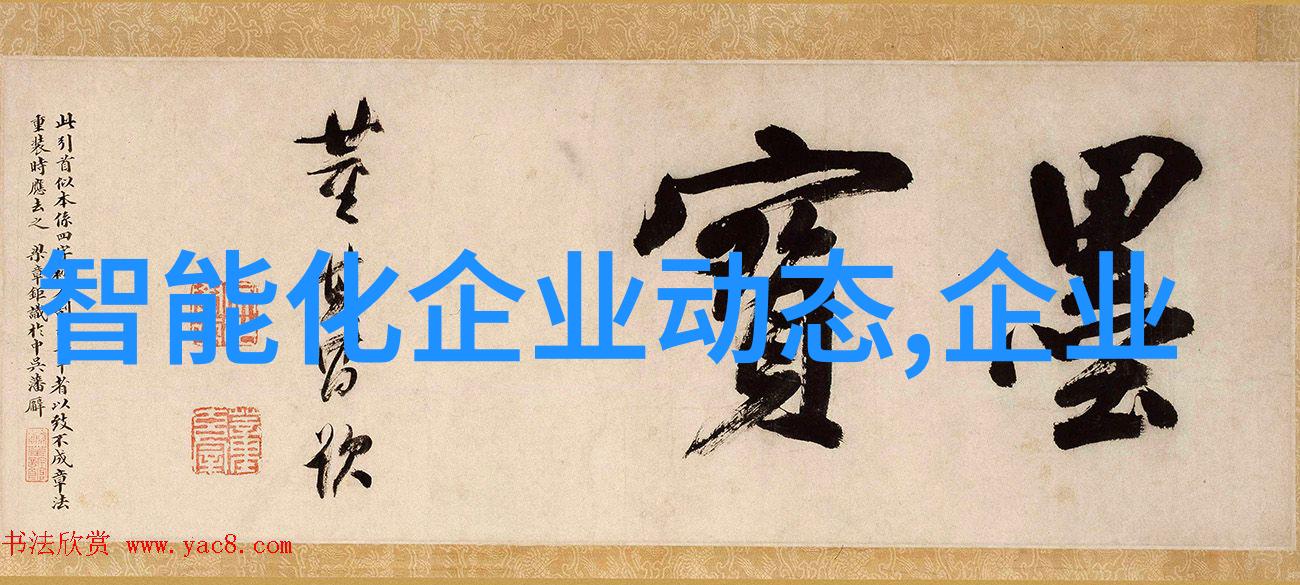 墨寶
董其昌題
此引首似本係四字 者以致不成章法
重裝時應去之 梁章鉅識於中吳藩廨
智能化企业动态,企业
书法欣赏 www.yac8.com